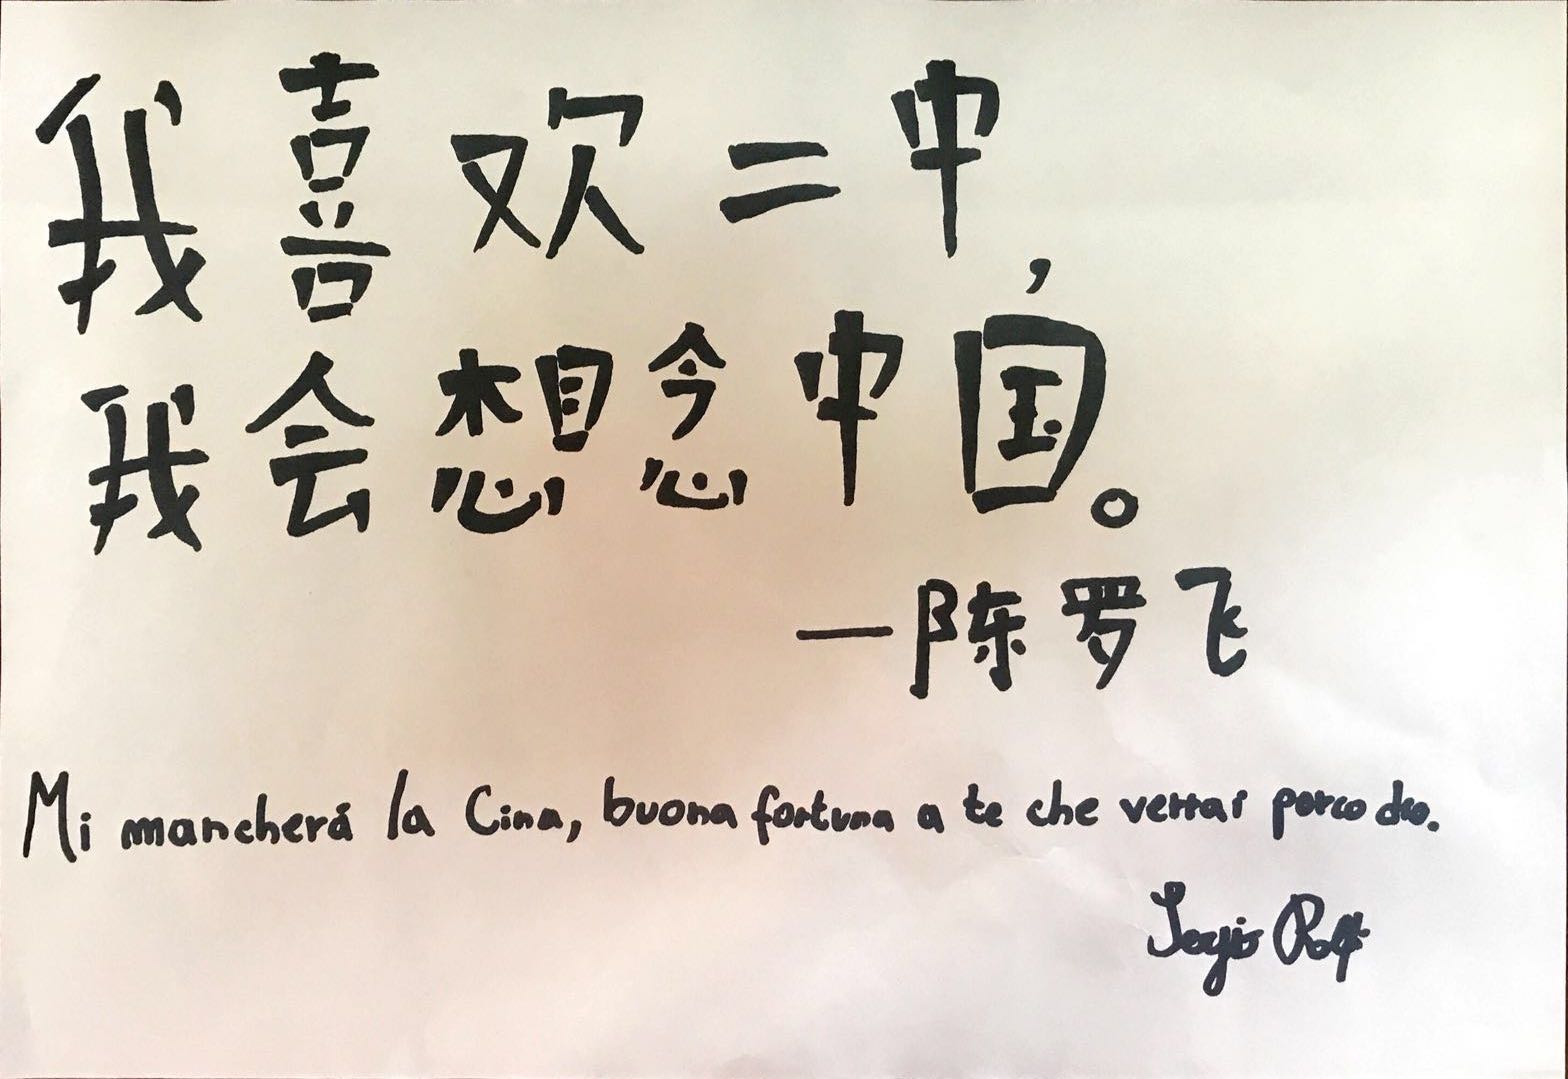 我喜欢二中,
我会想念中国。
—陈罗飞
Mi mancherá la Cina, buona fortuna a te che verrai porco dio.